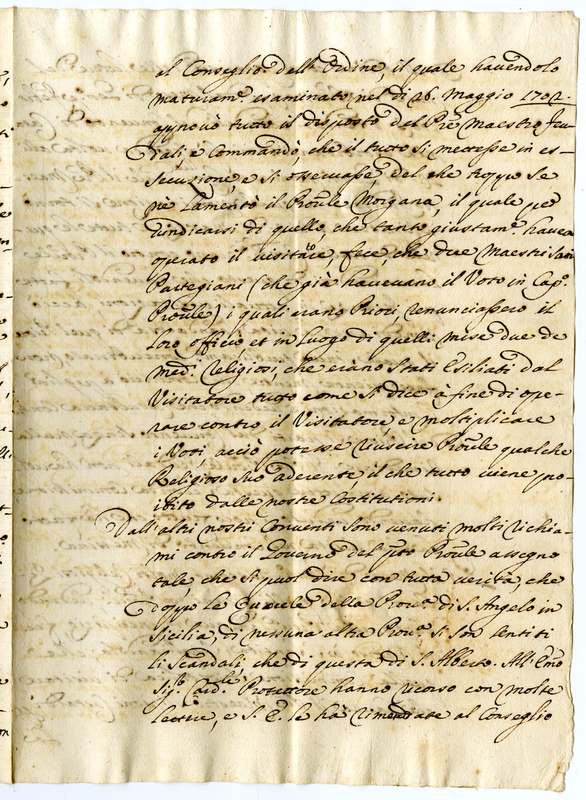 al Conseglio dell'Ordine, il quale havendolo
maturam.e esaminato, nel di 26. Maggio 1702.
approvò tutto il disposto del Pre Maestro feu-
dali, e Commandò, che il tutto si mettesse in es-
secuzione, e si osservasse del che troppo se
ne Lamentò il Proule Morgana, il quale per
vindicarsi di quello, che tanto giustam.e haveva
operato il visitãre, fece, che due Maestri suoi
Partegiani (che già havevano il Voto in Cap.o
Proule) i quali erano Priori, renunciassero il
loro officio, et in Luogo di quelli mise due de
med.i Religiosi, che erano stati Esiliati dal
Visitatore tutto come si dice à fine di ope-
rare contro il Visitatore, e moltiplicare
i Voti, acciò potesse riuscire Proule qualche
Religioso suo aderente, il che tutto viene po-
ibito dalle nostre Costitutioni.
Dall'altri nostri Conventi sono venuti molti richia-
mi contro il Governo del pto Proule a segno
tale, che si puol dire con tutta verità, che
doppo le della Prov.a di S. Angelo in
Sicilia, di nessuna altra Prov.a si son sentiti
li scandali, che di questa di S. Alberto. All'Emo
Sig.r Card.le Protettore hanno ricorso con molte
lettere, e S. E. le hà rimandate al Conseglio